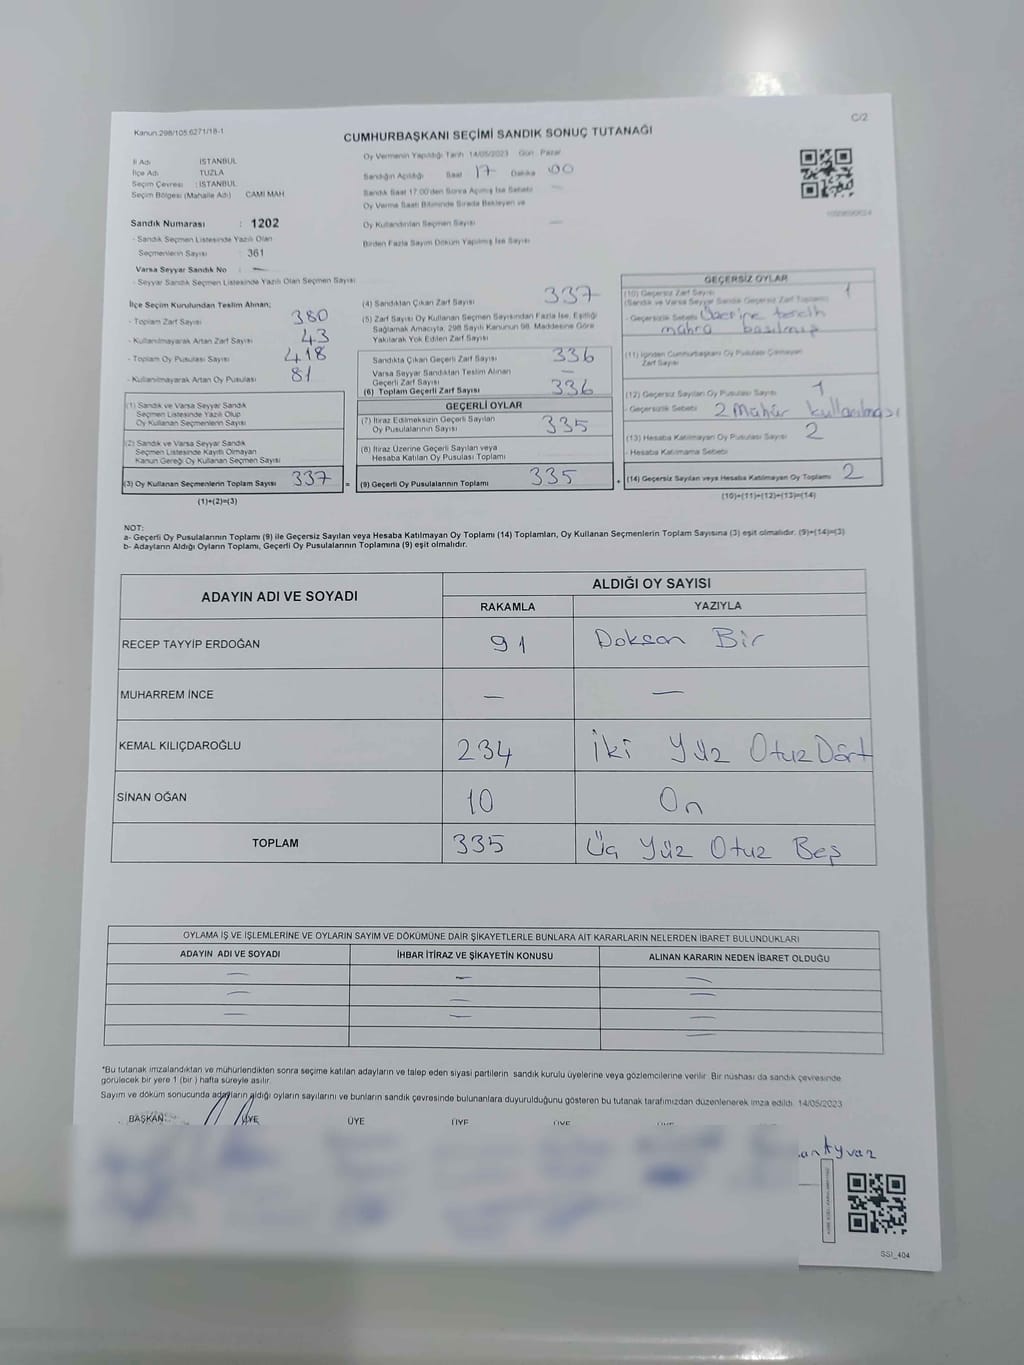 Kanun.298/105.6271/18-1
C/2
CUMHURBAŞKANI SEÇİMİ SANDIK SONUÇ TUTANAĞI
İl Adı İSTANBUL
İlçe Adı TUZLA
Seçim Çevresi : İSTANBUL
Seçim Bölgesi (Mahalle Adı) CAMİ MAH
Sandık Numarası : 1202
- Sandık Seçmen Listesinde Yazılı Olan
Seçmenlerin Sayısı : 361
Varsa Seyyar Sandık No : —
- Seyyar Sandık Seçmen Listesinde Yazılı Olan Seçmen Sayısı
Oy Vermenin Yapıldığı Tarih 14/05/2023 Gün Pazar
Sandığın Açıldığı Saat 17 Dakika 00
Sandık Saat 17:00'den Sonra Açılmış İse Sebebi —
Oy Verme Saati Bitiminde Sırada Bekleyen ve
Oy Kullandırılan Seçmen Sayısı —
Birden Fazla Sayım Döküm Yapılmış İse Sayısı
İlçe Seçim Kurulundan Teslim Alınan;
- Toplam Zarf Sayısı 380
- Kullanılmayarak Artan Zarf Sayısı 43
- Toplam Oy Pusulası Sayısı 418
- Kullanılmayarak Artan Oy Pusulası 81
(1) Sandık ve Varsa Seyyar Sandık
Seçmen Listesinde Yazılı Olup
Oy Kullanan Seçmenlerin Sayısı
(2) Sandık ve Varsa Seyyar Sandık
Seçmen Listesinde Kayıtlı Olmayan
Kanun Gereği Oy Kullanan Seçmen Sayısı
(3) Oy Kullanan Seçmenlerin Toplam Sayısı 337 =
(1)+(2)=(3)
(4) Sandıktan Çıkan Zarf Sayısı 337
(5) Zarf Sayısı Oy Kullanan Seçmen Sayısından Fazla İse, Eşitliği
Sağlamak Amacıyla, 298 Sayılı Kanunun 98. Maddesine Göre
Yakılarak Yok Edilen Zarf Sayısı
Sandıkta Çıkan Geçerli Zarf Sayısı 336
Varsa Seyyar Sandıktan Teslim Alınan
Geçerli Zarf Sayısı —
(6) Toplam Geçerli Zarf Sayısı 336
GEÇERLİ OYLAR
(7) İtiraz Edilmeksizin Geçerli Sayılan
Oy Pusulalarının Sayısı 335
(8) İtiraz Üzerine Geçerli Sayılan veya
Hesaba Katılan Oy Pusulası Toplamı
(9) Geçerli Oy Pusulalarının Toplamı 335 +
GEÇERSİZ OYLAR
(10) Geçersiz Zarf Sayısı 1
(Sandık ve Varsa Seyyar Sandık Geçersiz Zarf Toplamı)
- Geçersizlik Sebebi Üzerine tercih
mührü basılmış
(11) İçinden Cumhurbaşkanı Oy Pusulası Çıkmayan
Zarf Sayısı
(12) Geçersiz Sayılan Oy Pusulası Sayısı 1
- Geçersizlik Sebebi 2 Mühür kullanılması
(13) Hesaba Katılmayan Oy Pusulası Sayısı 2
- Hesaba Katılmama Sebebi
(14) Geçersiz Sayılan veya Hesaba Katılmayan Oy Toplamı 2
(10)+(11)+(12)+(13)=(14)
NOT:
a- Geçerli Oy Pusulalarının Toplamı (9) ile Geçersiz Sayılan veya Hesaba Katılmayan Oy Toplamı (14) Toplamları, Oy Kullanan Seçmenlerin Toplam Sayısına (3) eşit olmalıdır. (9)+(14)=(3)
b- Adayların Aldığı Oyların Toplamı, Geçerli Oy Pusulalarının Toplamına (9) eşit olmalıdır.
ADAYIN ADI VE SOYADI
ALDIĞI OY SAYISI
RAKAMLA YAZIYLA
RECEP TAYYİP ERDOĞAN 91 Doksan Bir
MUHARREM İNCE — —
KEMAL KILIÇDAROĞLU 234 İki Yüz Otuz Dört
SİNAN OĞAN 10 On
TOPLAM 335 Üç Yüz Otuz Beş
OYLAMA İŞ VE İŞLEMLERİNE VE OYLARIN SAYIM VE DÖKÜMÜNE DAİR ŞİKAYETLERLE BUNLARA AİT KARARLARIN NELERDEN İBARET BULUNDUKLARI
ADAYIN ADI VE SOYADI İHBAR İTİRAZ VE ŞİKAYETİN KONUSU ALINAN KARARIN NEDEN İBARET OLDUĞU
— — —
— — —
— — —
—
*Bu tutanak imzalandıktan ve mühürlendikten sonra seçime katılan adayların ve talep eden siyasi partilerin sandık kurulu üyelerine veya gözlemcilerine verilir. Bir nüshası da sandık çevresinde
görülecek bir yere 1 (bir ) hafta süreyle asılır.
Sayım ve döküm sonucunda adayların aldığı oyların sayılarını ve bunların sandık çevresinde bulunanlara duyurulduğunu gösteren bu tutanak tarafımızdan düzenlenerek imza edildi. 14/05/2023
BAŞKAN ÜYE ÜYE ÜYE ÜYE
SSI_404